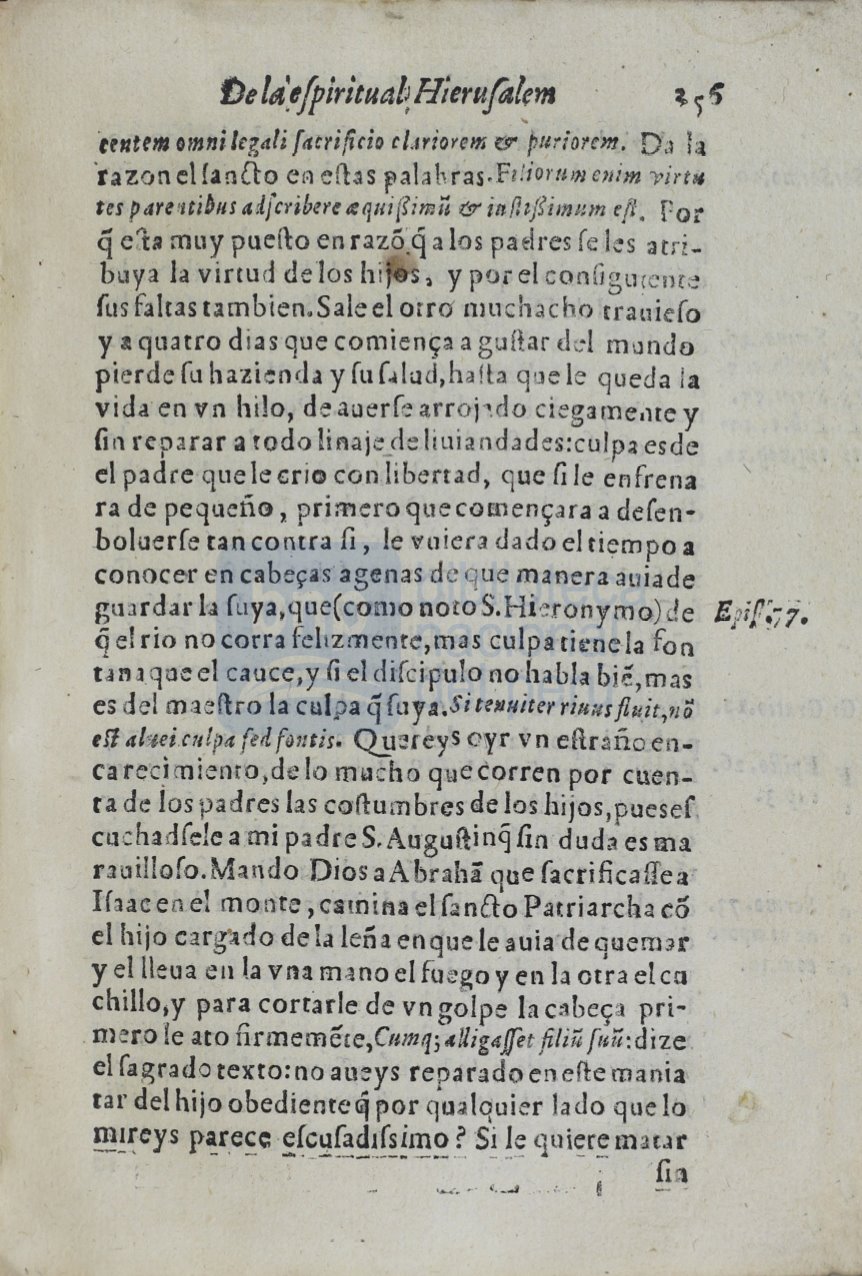 De la eſpiritual Hieruſalem 256
centem omni legali ſacrificio clariorem & puriorem. Da la
razon el ſancto en eſtas palabras. Filiorum enim virtu
tes parentibus adſcribere æquiſsimũ & iuſtiſsimum eſt. Por
q̃ eſta muy pueſto en razõ q̃ a los padres ſe les atri-
buya la virtud de los hijos, y por el conſiguiente
ſus faltas tambien. Sale el otro muchacho trauieſo
y a quatro dias que comiença a guſtar del mundo
pierde ſu hazienda y ſu ſalud, haſta que le queda la
vida en vn hilo, de auerſe arrojado ciegamente y
ſin reparar a todo linaje de liuiandades: culpa es de
el padre que le crio con libertad, que ſi le enfrena
ra de pequeño, primero que començara a deſen-
boluerſe tan contra ſi, le vuiera dado el tiempo a
conocer en cabeças agenas de que manera auia de
guardar la ſuya, que (como noto S. Hieronymo) de
q̃ el rio no corra felizmente, mas culpa tiene la fon
tana que el cauce, y ſi el diſcipulo no habla biẽ, mas
es del maeſtro la culpa q̃ ſuya. Si tenuiter riuus fluit, nõ
eſt aluei culpa ſed fontis. Quereys oyr vn eſtraño en-
carecimiento, de lo mucho que corren por cuen-
ta de los padres las coſtumbres de los hijos, pues eſ
cuchadſele a mi padre S. Auguſtin q̃ ſin duda es ma
rauilloſo. Mando Dios a Abrahã que ſacrificaſſe a
Iſaac en el monte, camina el ſancto Patriarcha cõ
el hijo cargado de la leña en que le auia de quemar
y el lleua en la vna mano el fuego y en la otra el cu
chillo, y para cortarle de vn golpe la cabeça pri-
mero le ato firmemẽte, Cumq; alligaſſet filiũ ſuũ: dize
el ſagrado texto: no aueys reparado en eſte mania
tar del hijo obediente q̃ por qualquier lado que lo
mireys parece eſcuſadiſsimo? Si le quiere matar
ſin
Epiſt. 77.